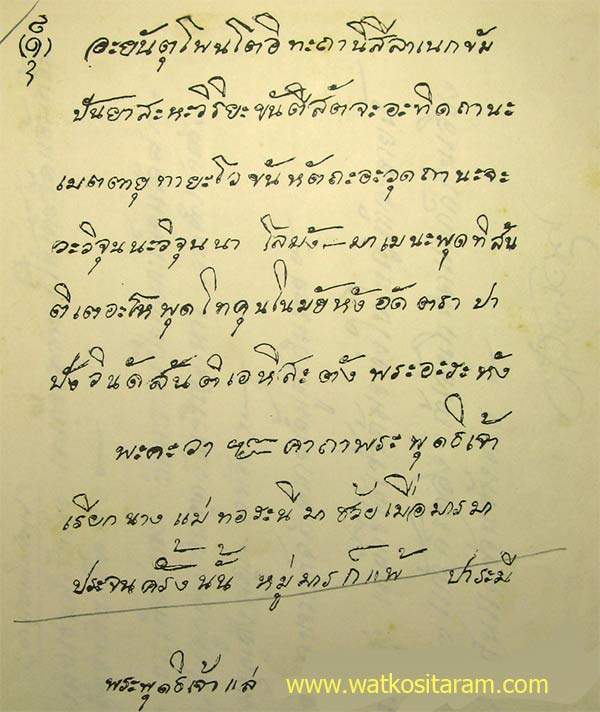 (๑)
อะยันตุโพนโตอิทะถานิสีลาเนกขัม
ปันยาสะหะวิริยะขันตีสัตจะอะทิดถานะ
เมตตายุทายะโวขันหัตถะอะวุดถานะจะ
วะวิจุนนะวิจุนนา โลมัง มาเมนะพุดทิสัน
ติเตอะโหพุดโทคุนโนมัยหังอัดตราปา
ปังวินัดสันติเอหิสะตังพระอะระหัง
พะคะวา คาถาพระพุดธิเจ้า
เรียกนางแม่ทอระนีมาช่วยเมื่อมารมา
ประจนครั้งนั้น หมู่มารก็แพ้ ปาระมี
พระพุดธิเจ้าแล่
www.watkositaram.com